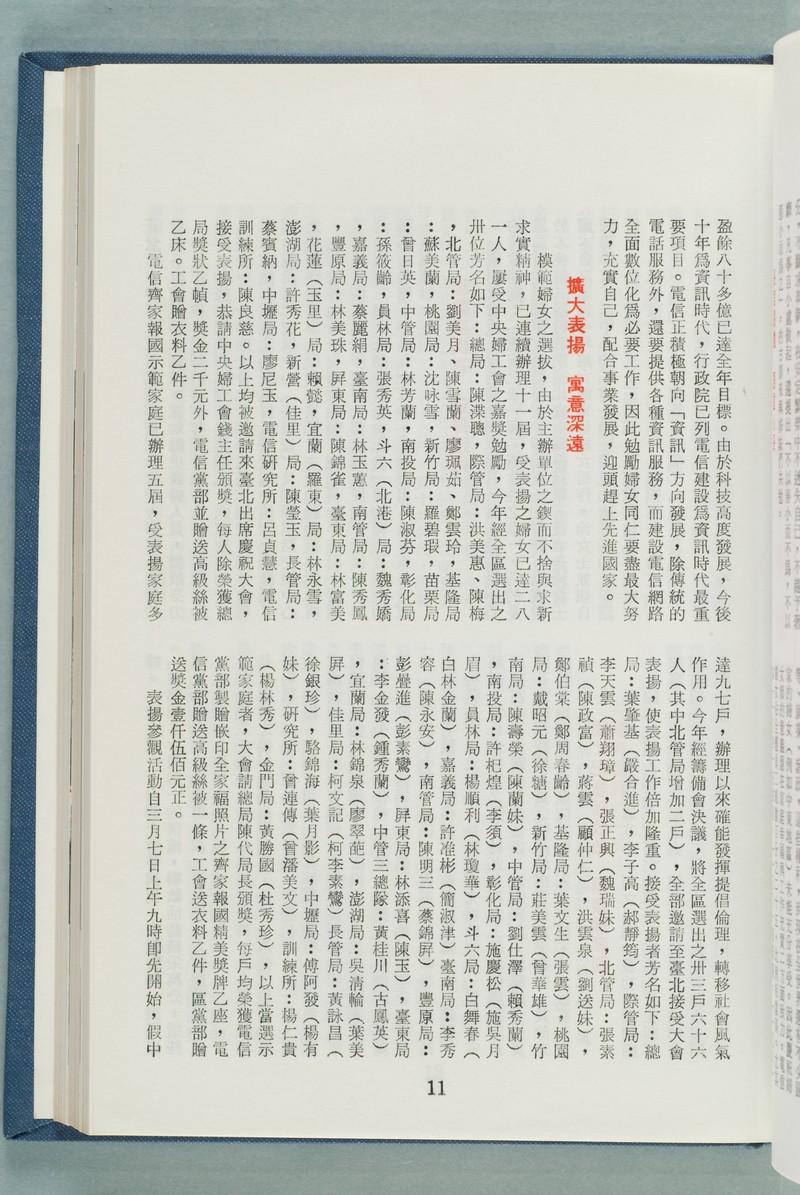 盈餘八十多億已達全年目標。由於科技高度發展，今後
十年爲資訊時代，行政院已列電信建設爲資訊時代最重
要項目。電信正積極朝向「資訊」方向發展，除傳統的
電話服務外，還要提供各種資訊服務，而建設電信網路
全面數位化爲必要工作，因此勉勵婦女同仁要盡最大努
力，充實自己，配合事業發展，迎頭趕上先進國家。
擴大表揚　寓意深遠
模範婦女之選拔，由於主辦單位之鍥而不捨與求新
求實精神，已連續辦理十一屆，受表揚之婦女已達二八
一人，屢受中央婦工會之嘉獎勉勵，今年經全區選出之
卅位芳名如下：總局：陳渫聰，際管局：洪美惠、陳梅
，北管局：劉美月、陳雪蘭、廖珮茹、鄭雲玲，基隆局
：蘇美蘭，桃園局：沈咏雪，新竹局：羅碧瑕，苗栗局
：曾日英，中管局：林芳蘭，南投局：陳淑芬，彰化局
：孫筱齡，員林局：張秀英，斗六（北港）局：魏秀嬌
，嘉義局：蔡麗絹，臺南局：林玉蕙，南管局：陳秀鳳
，豐原局：林美珠，屏東局：陳錦雀，臺東局：林富美
，花蓮（玉里）局：賴懿，宜蘭（羅東）局：林永雪，
澎湖局：許秀花，新營（佳里）局：陳瑩玉，長管局：
蔡賓納，中壢局：廖尼玉，電信研究所：呂貞慧，電信
訓練所：陳良慈。以上均被邀請來臺北出席慶祝大會，
接受表揚，恭請中央婦工會錢主任頒獎，每人除榮獲總
局獎狀乙幀，獎金二千元外，電信黨部並贈送高級絲被
乙床。工會贈衣料乙件。
電信齊家報國示範家庭已辦理五屆，受表揚家庭多
達九七戶，辦理以來確能發揮提倡倫理，轉移社會風氣
作用。今年經籌備會決議，將全區選出之卅三戶六十六
人（其中北管局增加二戶），全部邀請至臺北接受大會
表揚，使表揚工作倍加隆重。接受表揚者芳名如下：總
局：葉肇基（嚴合進），李子高（郝靜筠），際管局：
李天雲（蕭翔璋），張正興（魏瑞妹），北管局：張素
禎（陳政富），蔣雲（顧仲仁），洪雲泉（劉送妹），
鄭伯棠（鄭周春齡），基隆局：葉文生（張雲），桃園
局：戴昭元（徐糖），新竹局：莊美雲（曾華雄），竹
南局：陳壽榮（陳蘭妹），中管局：劉仕澤（賴秀蘭）
，南投局：許杞煌（李須），彰化局：施慶松（施吳月
眉），員林局：楊順利（林瓊華），斗六局：白舞春（
白林金蘭），嘉義局：許准彬（簡淑津）臺南局：李秀
容（陳永安），南管局：陳明三（蔡錦屏），豐原局：
彭疊進（彭素鸞），屏東局：林添喜（陳玉），臺東局
：李金發（鍾秀蘭），中管三總隊：黃桂川（古鳳英）
，宜蘭局：林錦泉（廖翠葩），澎湖局：吳淸輪（葉美
屏），佳里局：柯文記（柯李素鸞）長管局：黃詠昌（
徐銀珍），駱錦海（葉月影），中壢局：傅阿發（楊有
妹），研究所：曾連傳（曾潘美文），訓練所：楊仁貴
（楊林秀），金門局：黃勝國（杜秀珍），以上當選示
範家庭者，大會請總局陳代局長頒獎，每戶均榮獲電信
黨部製贈嵌印全家福照片之齊家報國精美獎牌乙座，電
信黨部贈送高級絲被一條，工會送衣料乙件，區黨部贈
送獎金壹仟伍佰元正。
表揚參觀活動自三月七日上午九時卽先開始，假中
11